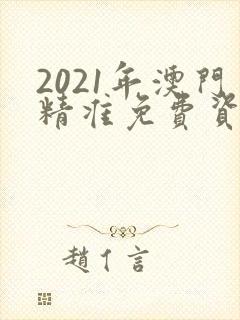 2021年澳門
精准免費資
趙亻言